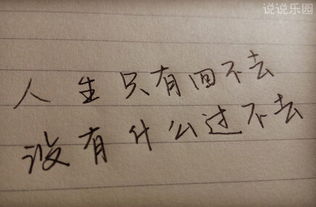 说说乐园
人生只有回不去
没有什么过不去